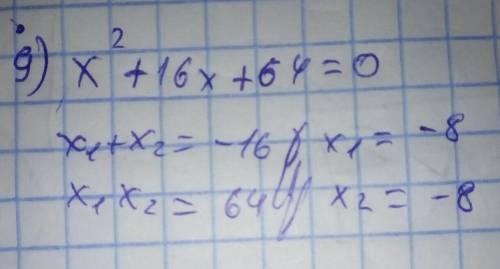 9) x² + 16x + 64 = 0
x₁ + x₂ = -16 x₁ = -8
x₁ x₂ = 64 x₂ = -8